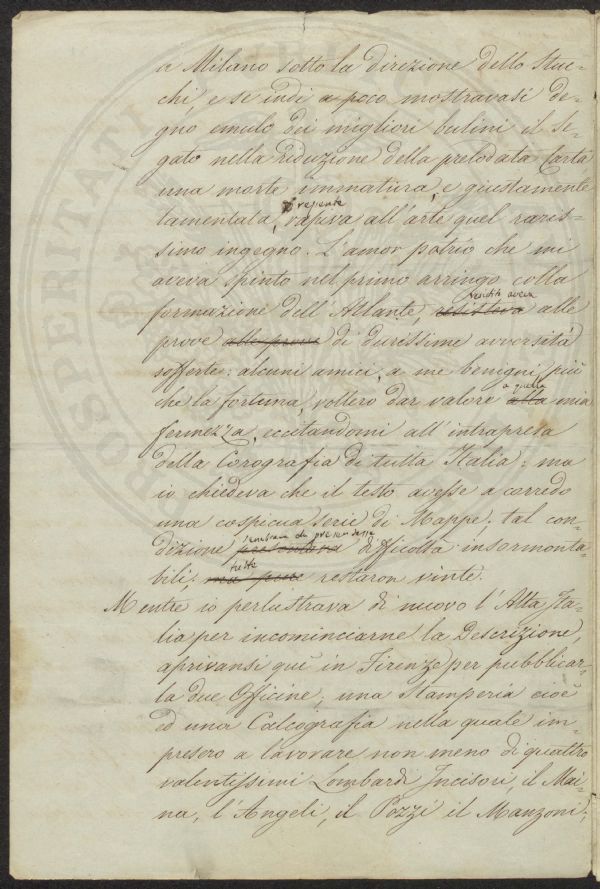 a Milano sotto la direzione dello Stuc=
chi, e se indi a poco mostravasi de=
gno emulo dei migliori bulini il Se=
gato nella riduzione della prelodata Carta
una morte immatura, e giustamente
repente
lamentata, rapiva all'arte quel raris=
simo ingegno. L'amor patrio che mi
aveva spinto nel primo arringo colla
vendite avea
formazione dell'Atlante, resisteva alle
prove alle prove di durissime avversità
sofferte: alcuni amici, a me benigni più
a quella
che la fortuna, vollero dar valore alla mia
fermezza, eccitandomi all'intrapresa
della Corografia di tutta Italia; ma
io chiedeva che il testo avesse a corredo
una cospicua serie di Mappe; tal con=
sembrava da prima
dizione presentava difficoltà insormonta=
tutte
bili; ma pure restaron vinte.
Mentre io perlustrava di nuovo l'Alta Ita=
lia per incominciarne la Descrizione,
aprivansi quì in Firenze per pubblicar=
la due Officine; una Stamperia cioè
ed una Calcografia nella quale im=
presero a lavorare non meno di quattro
valentissimi Lombardi Incisori, il Mai=
na, l'Angeli, il Pozzi il Manzoni;
PROSPERITATI